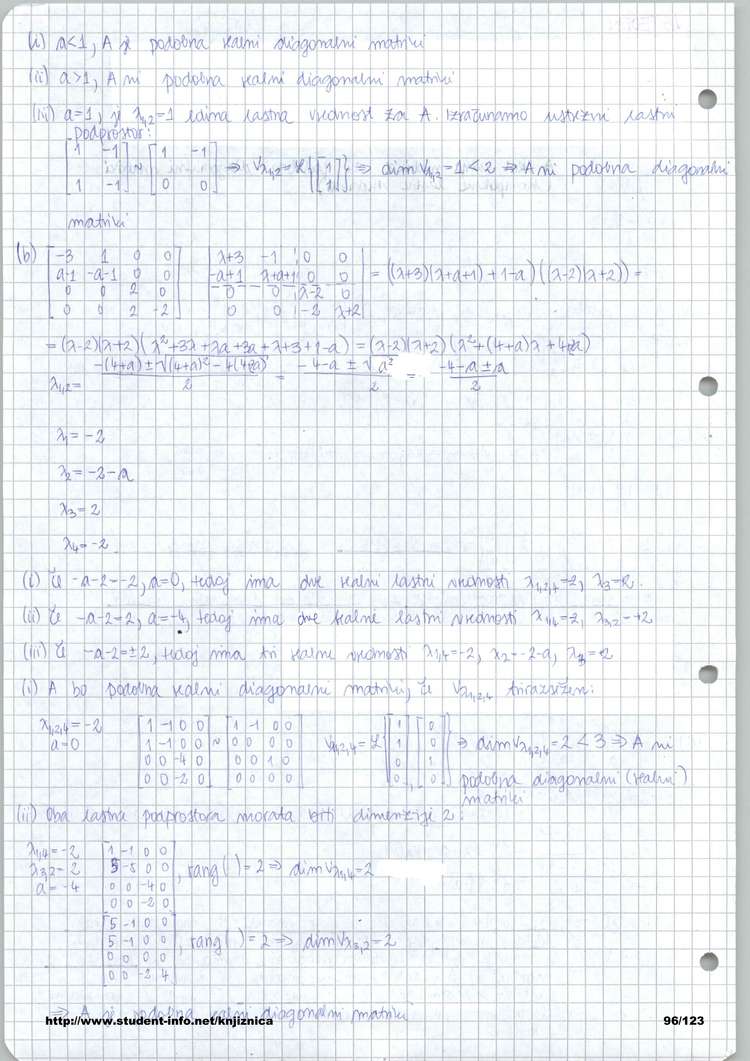 (i) a<1, A je podobna realni diagonalni matriki
(ii) a>1, A ni podobna realni diagonalni matriki
(iii) a=1, je λ1,2=1 edina lastna vrednost za A. Izračunamo ustrezni lastni
podprostor:
[1 -1; 1 -1] ~ [1 -1; 0 0] ⇒ Vλ1,2 = L{[1; 1]} ⇒ dim Vλ1,2 = 1 < 2 ⇒ A ni podobna diagonalni
matriki
(b) [-3 1 0 0; a-1 -a-1 0 0; 0 0 2 0; 0 0 2 -2] |λ+3 -1 0 0; -a+1 λ+a+1 0 0; 0 0 λ-2 0; 0 0 -2 λ+2| = ((λ+3)(λ+a+1)+1-a)((λ-2)(λ+2)) =
= (λ-2)(λ+2)(λ²+3λ+λa+3a+λ+3+1-a) = (λ-2)(λ+2)(λ²+(4+a)λ+4+2a)
λ1,2 = (-(4+a) ± √((4+a)²-4(4+2a)))/2 = (-4-a ± √a²)/2 = (-4-a±a)/2
λ1 = -2
λ2 = -2-a
λ3 = 2
λ4 = -2
(i) Če -a-2=-2, a=0, tedaj ima dve realni lastni vrednosti λ1,2,4=2, λ3=2.
(ii) Če -a-2=2, a=-4, tedaj ima dve realne lastni vrednosti λ1,4=2, λ3,2=+2
(iii) Če -a-2=±2, tedaj ima tri realne vrednosti λ1,4=-2, λ2=-2-a, λ3=2
(i) A bo podobna realni diagonalni matriki, če Vλ1,2,4 trirazsežen:
λ1,2,4=-2
a=0
[1 -1 0 0; 1 -1 0 0; 0 0 -4 0; 0 0 -2 0] ~ [1 -1 0 0; 0 0 0 0; 0 0 1 0; 0 0 0 0] Vλ1,2,4 = L{[1; 1; 0; 0], [0; 0; 1; 0]} ⇒ dim Vλ1,2,4 = 2 < 3 ⇒ A ni
podobna diagonalni (realni)
matriki
(ii) Oba lastna podprostora morata biti dimenzije 2:
λ1,4=-2
λ3,2=2
a=-4
[1 -1 0 0; 5 -5 0 0; 0 0 -4 0; 0 0 -2 0], rang( )=2 ⇒ dim Vλ1,4=2
[5 -1 0 0; 5 -1 0 0; 0 0 0 0; 0 0 -2 4], rang( )=2 ⇒ dim Vλ3,2=2
⇒ A je podobna realni diagonalni matriki
http://www.student-info.net/knjiznica 96/123